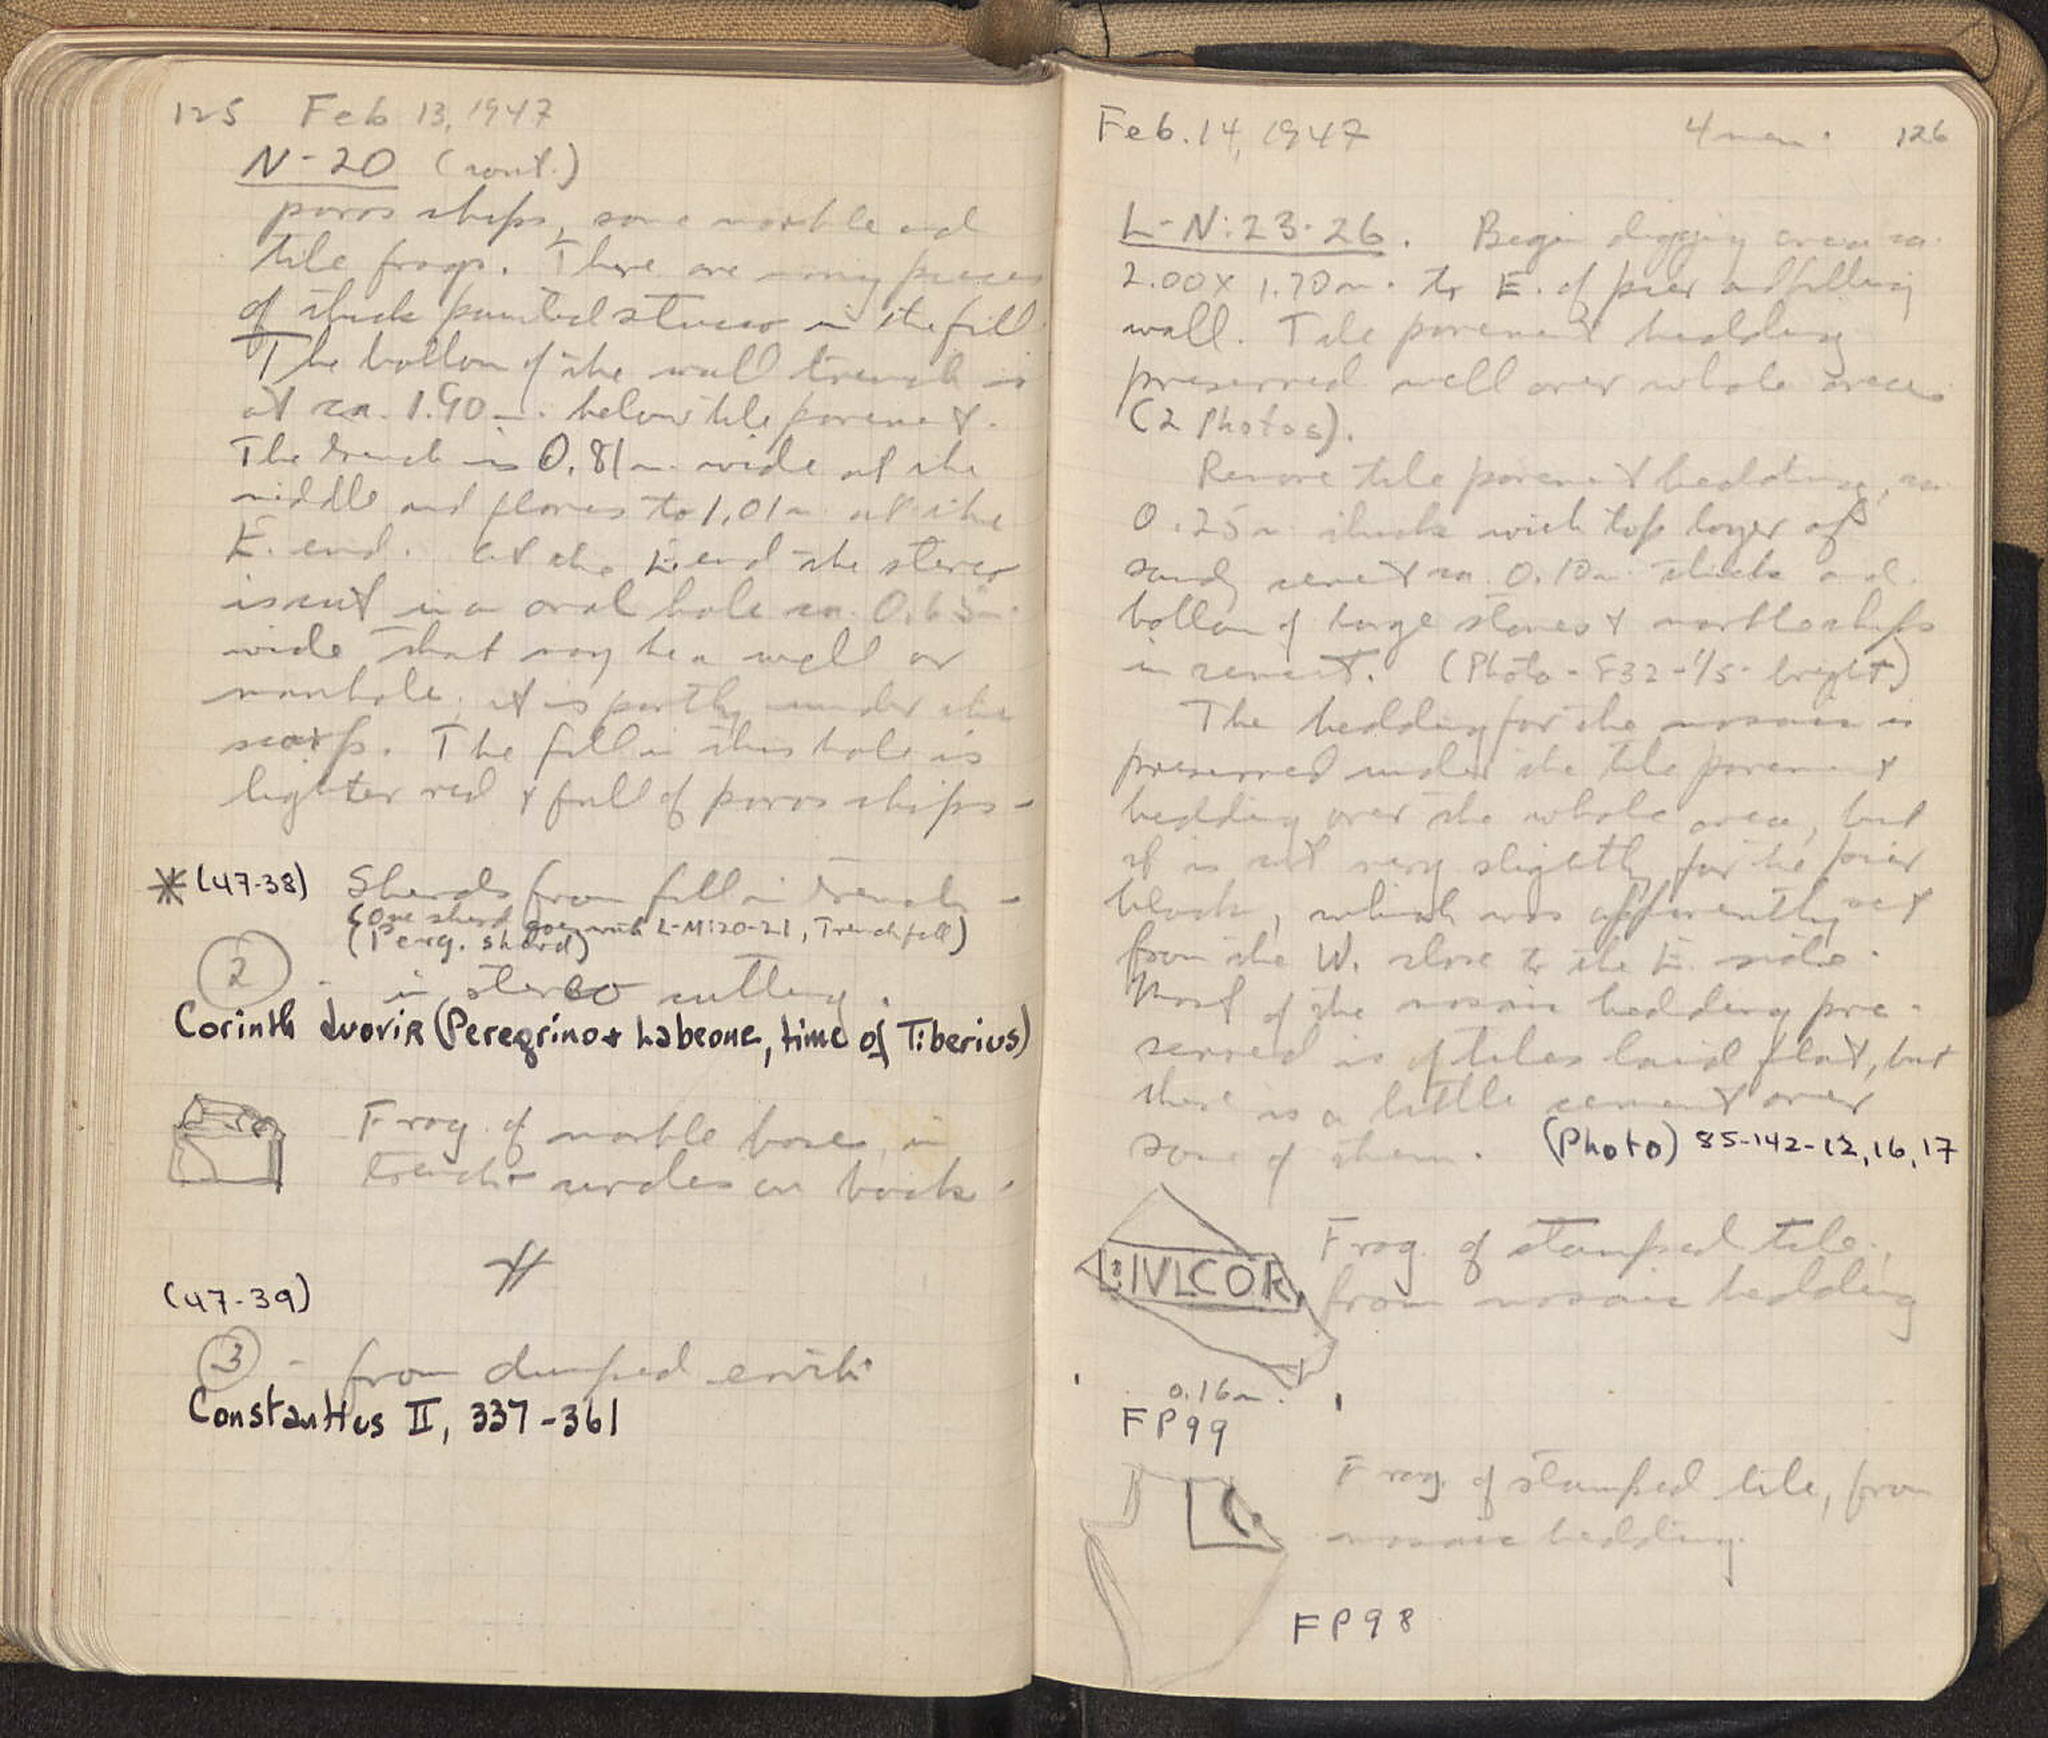 125 Feb 13, 1947
N-20 (cont.)
poros chips, some marble and
tile frags. There are many pieces
of thick painted stucco in the fill.
The bottom of the wall trench is
at ca. 1.90 m. below tile pavement.
The trench is 0.81 m. wide at the
middle and flares to 1.01 m. at the
E. end. At the E end the stereo
is cut in an oval hole ca. 0.65 m.
wide that may be a well or
manhole; it is partly under the
scarp. The fill in this hole is
lighter red & full of poros chips -
* (47-38) Sherds from fill in trench -
(One sherd goes with L-M:20-21, Trench fill)
(Perg. sherd)
② - in stereo cutting.
Corinth duovir (Peregrino + Labeone, time of Tiberius)
Frag. of marble base, in
trench - circles on back.
(47-39)
③ - from dumped earth.
Constantius II, 337-361
Feb. 14, 1947 4 men. 126
L-N:23-26. Begin digging area ca.
2.00 x 1.70 m. to E. of pier
wall. Tile pavement bedding
preserved well over whole area
(2 Photos).
Remove tile pavement bedding, ca
0.25 m thick with top layer of
sandy cement ca. 0.10 m. thick and
bottom of large stones & marble chips
in cement. (Photo - F32 - 1/5 - bright)
The bedding for the mosaic is
preserved under the tile pavement
bedding over the whole area, but
it is cut very slightly for the pier
block, which was apparently set
from the W. close to the E. side.
Most of the mosaic bedding pre-
served is of tiles laid flat, but
there is a little cement over
some of them. (Photo) 85-142-12, 16, 17
L:IVLCOR
Frag. of stamped tile,
from mosaic bedding
0.16 m.
FP99
Frag. of stamped tile, from
mosaic bedding.
FP98